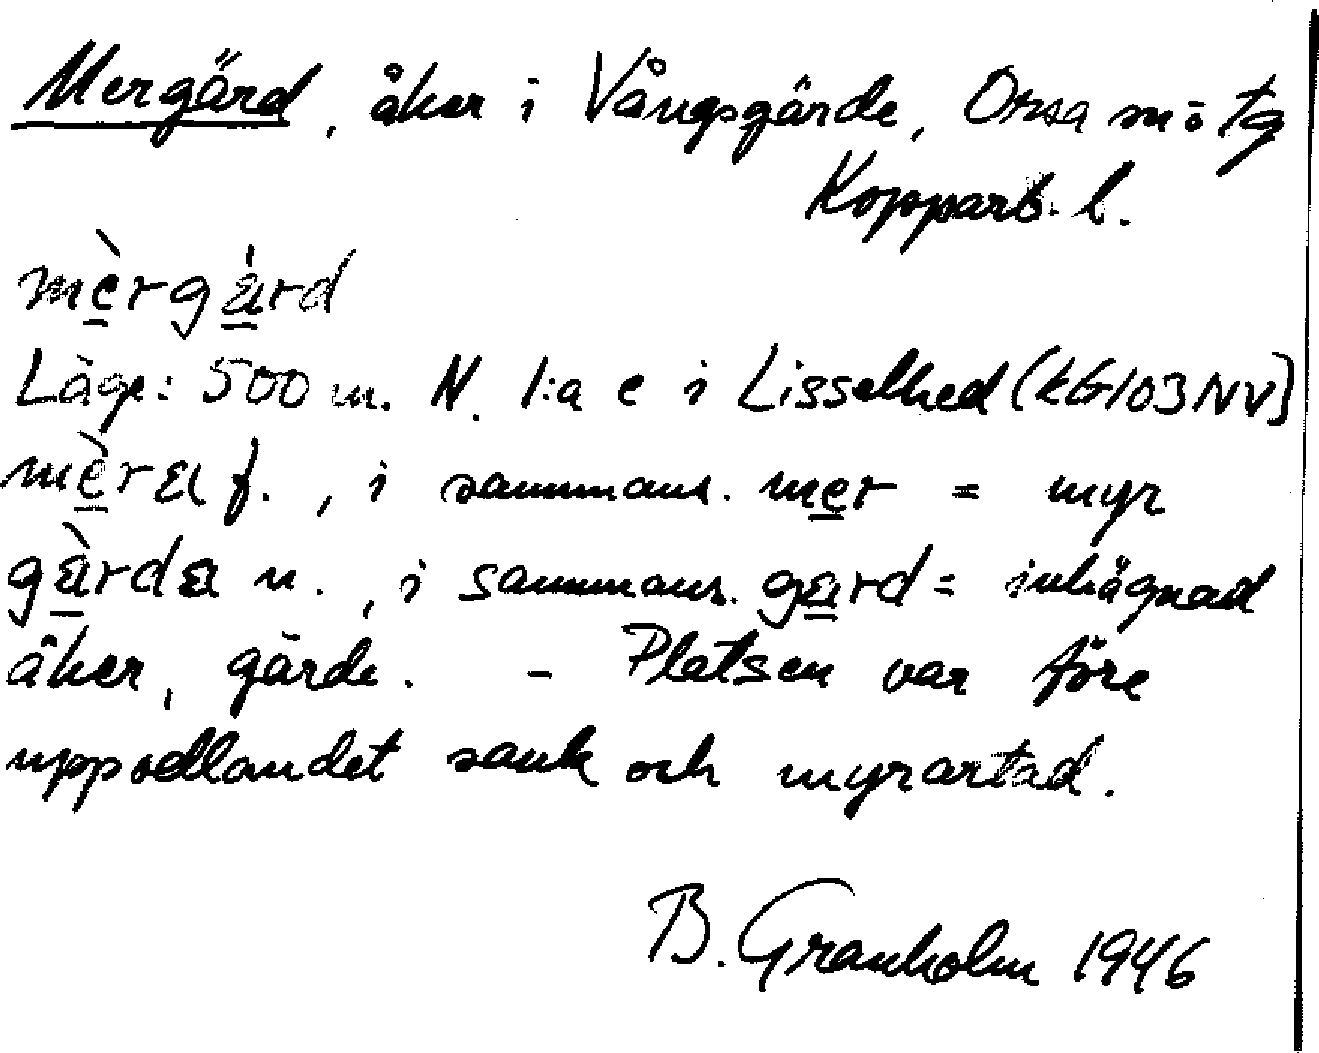 Mergärd, åker i Vångsgärde, Orsa sn ö tg
Kopparb. l.
mè̱rgä̱́rd
Läge: 500 m. N. l:a e i Lisselhed (kG103NV)
mè̱rä f., i sammans. me̱r = myr
gä̱̀rdä n., i sammans. gä̱rd = inhägnad
åker, gärde. - Platsen var före
uppodlandet sank och myrartad.
B. Granholm 1946